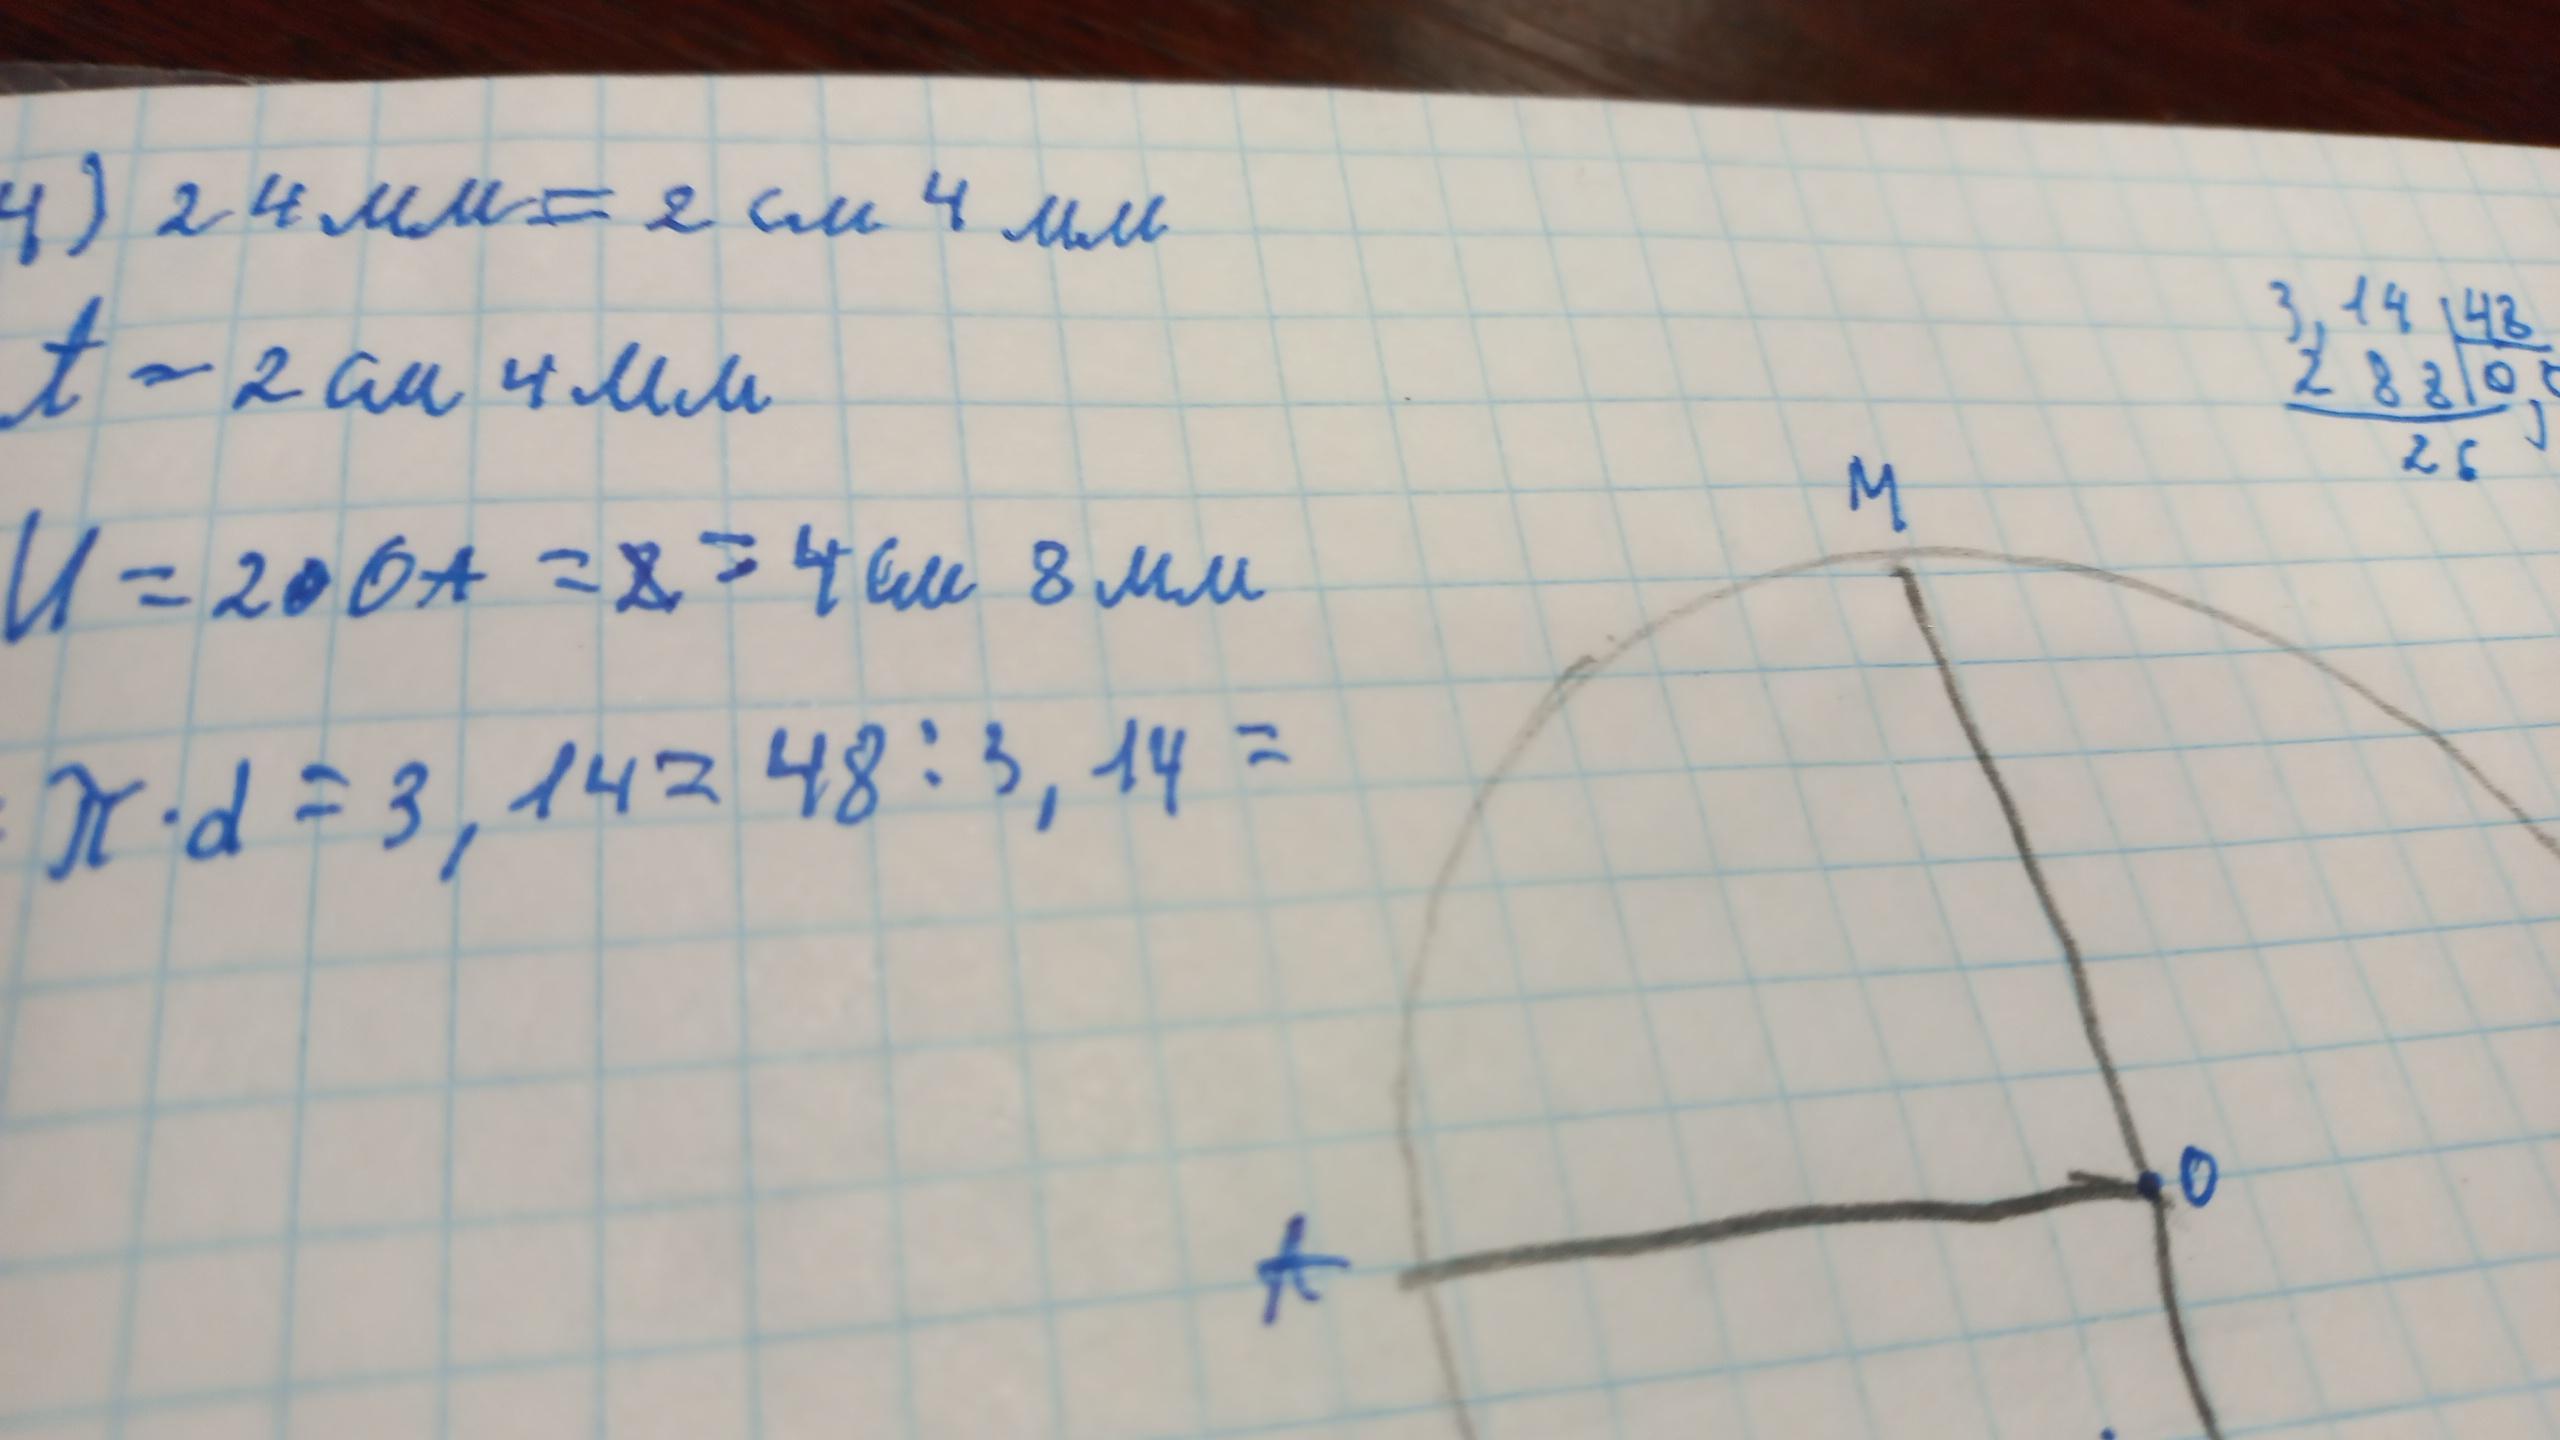 4) 24 мм = 2 см 4 мм
A - 2 см 4 мм
= 2 • OA = = 4 см 8 мм
π · d = 3,14 = 48 : 3,14 =
3,14 48
2 88 0,
26
M
O
A